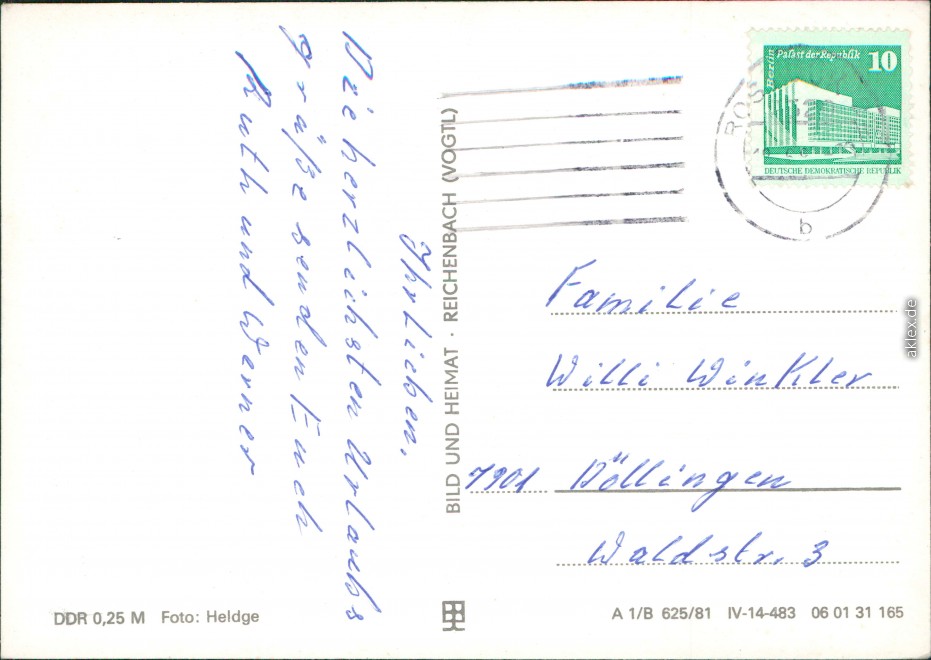 Ihr Lieben,
Die herzlichsten Urlaubs
grüße senden Euch
Ruth und Werner
BILD UND HEIMAT · REICHENBACH (VOGTL)
Berlin
Palast der Republik
10
DEUTSCHE DEMOKRATISCHE REPUBLIK
ROS
b
Familie
Willi Winkler
7901 Döllingen
Waldstr. 3
DDR 0,25 M Foto: Heldge
A 1/B 625/81 IV-14-483 06 01 31 165
aklex.de